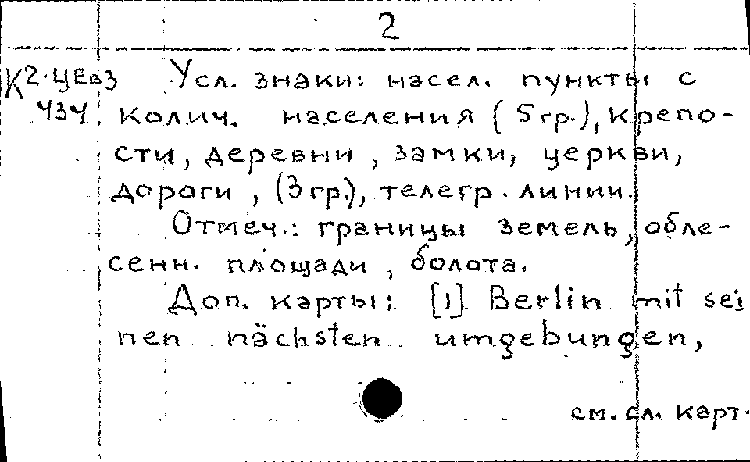 2
К2-ЦЕв3 Усл. знаки: насел. пункты с
434 колич. населения (5 гр.), крепо-
сти, деревни, замки, церкви,
дороги, (3 гр.), телегр. линии.
Отмеч.: границы земель, обле-
сенн. площади, болота.
Доп. карты: [1] Berlin mit sei
nen nächsten umgebungen,
см. сл. карт.